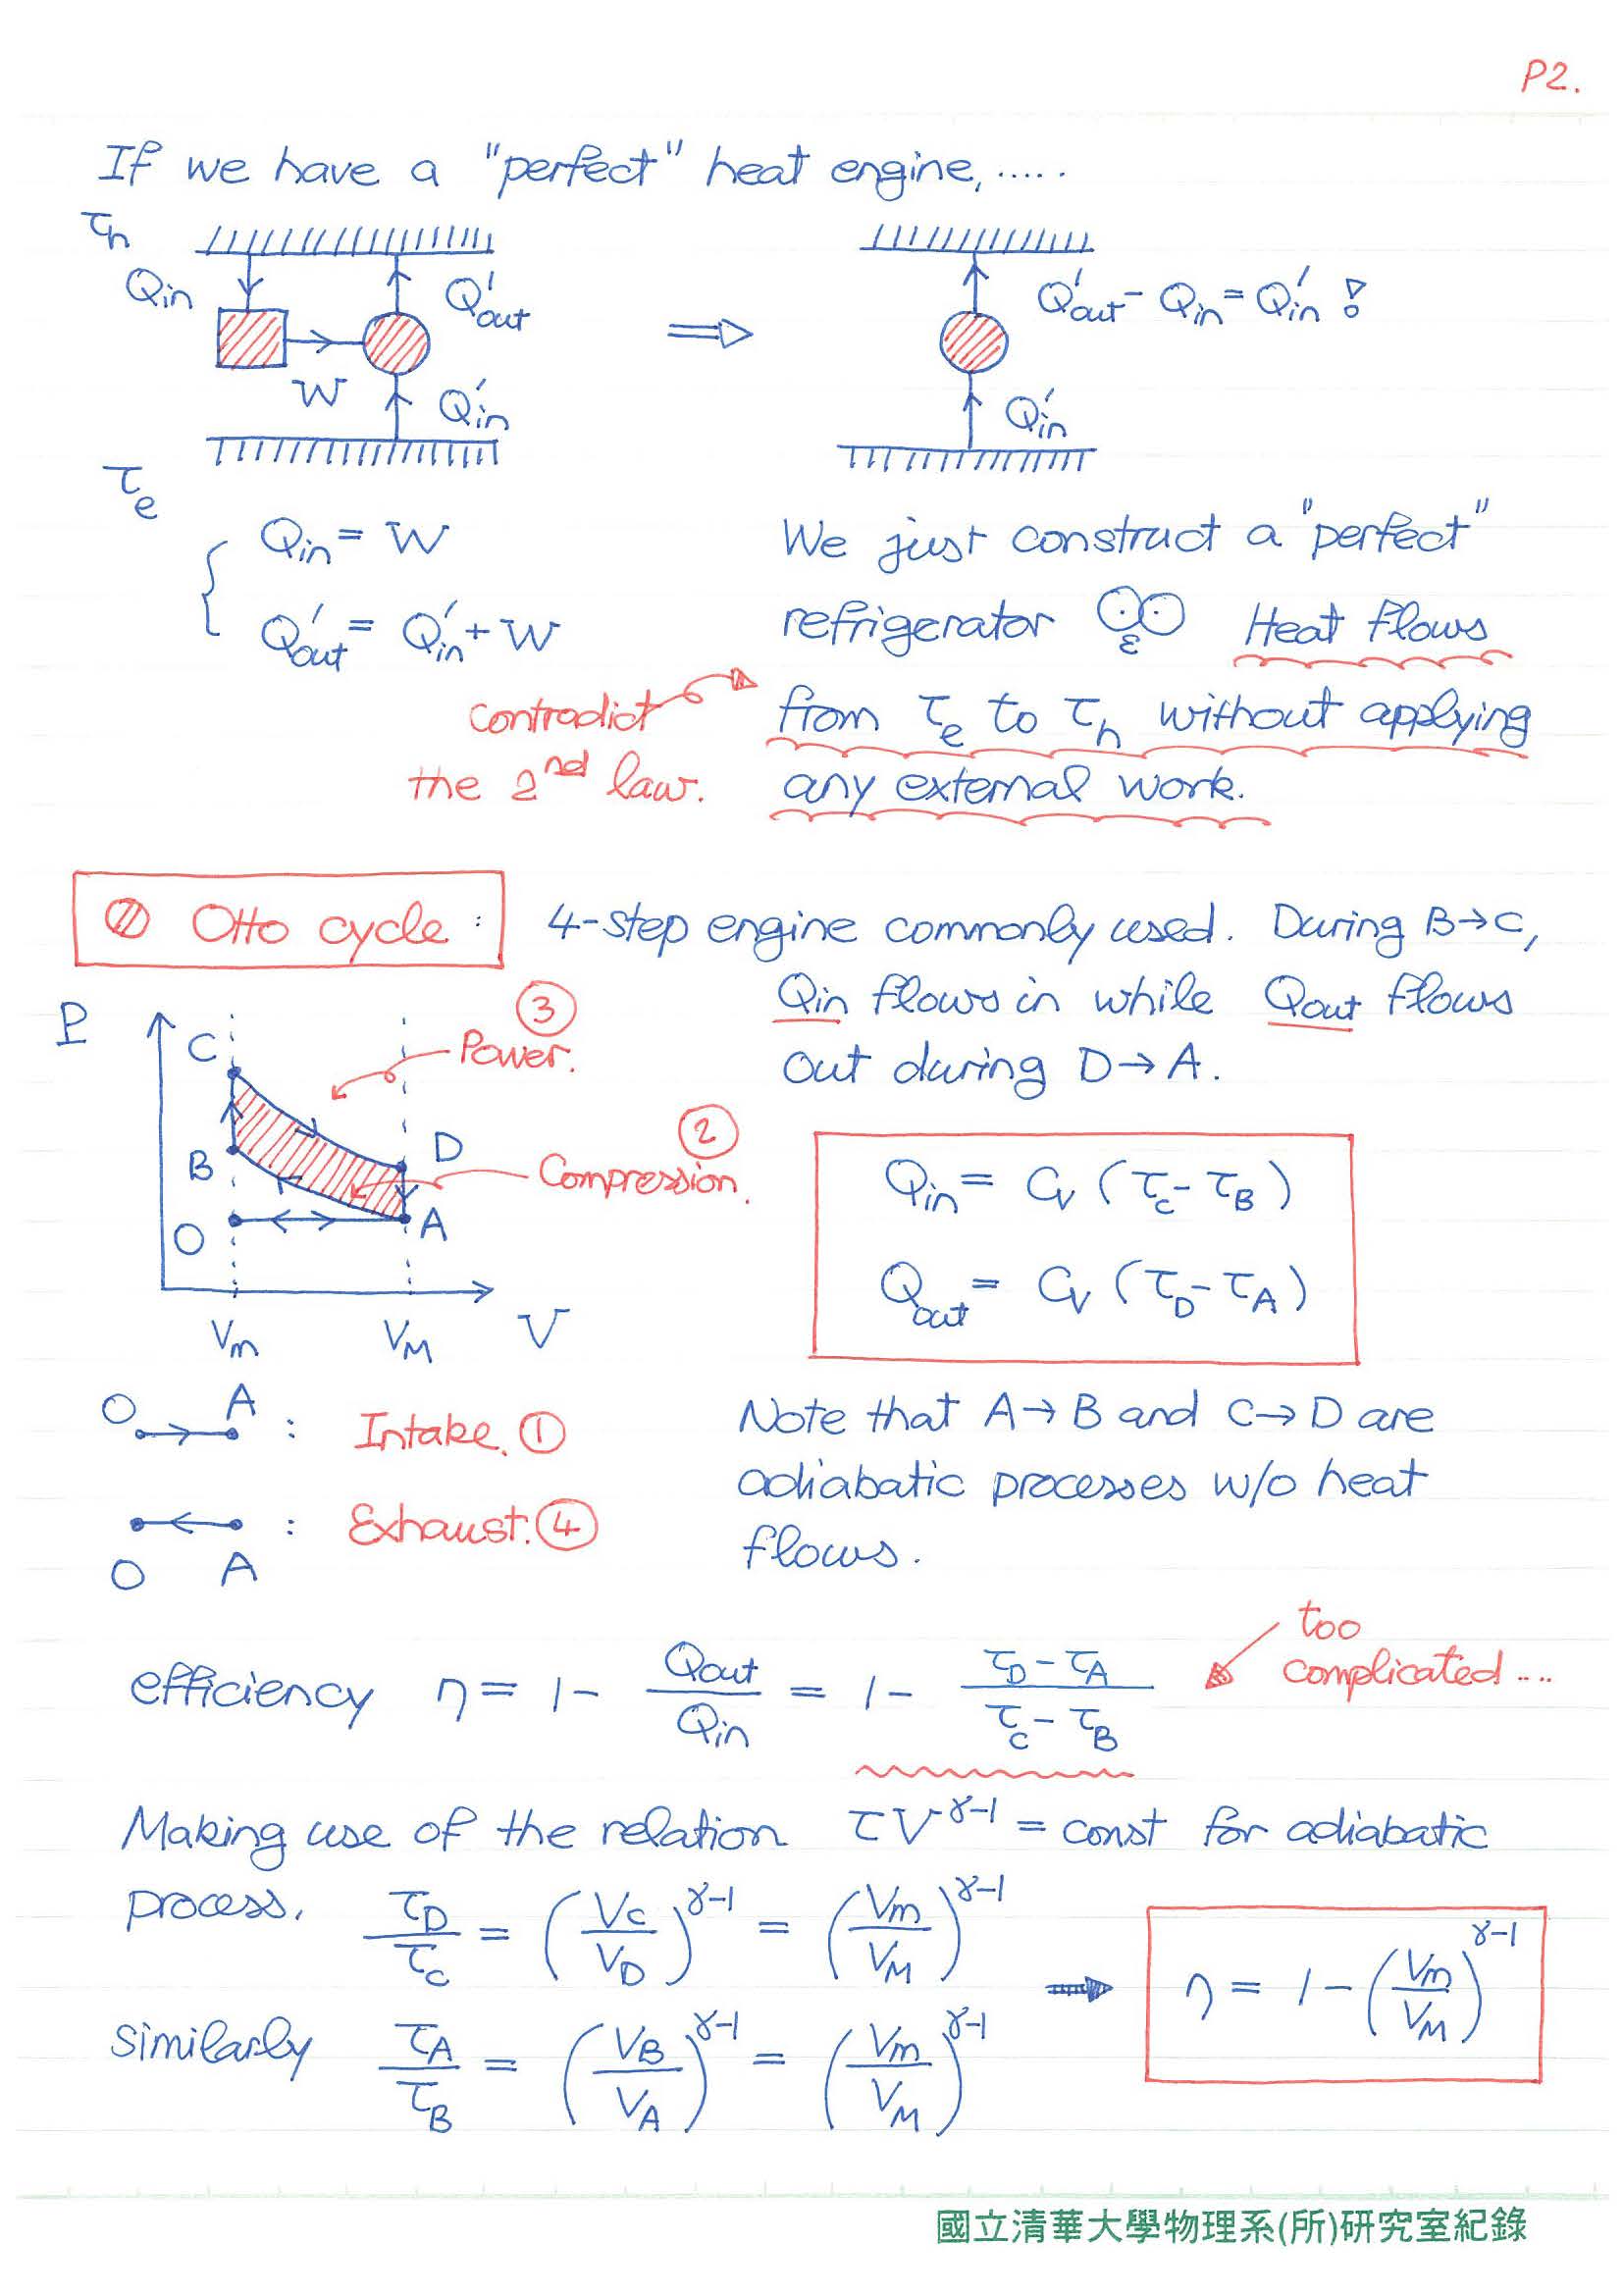 P2.
If we have a "perfect" heat engine, .....
τh
Qin
Q'out
W
Q'in
τe
⇒
Q'out - Qin = Q'in !
Q'in
Qin = W
Q'out = Q'in + W
We just construct a "perfect"
refrigerator Heat flows
from τe to τh without applying
any external work.
contradict
the 2nd law.
Otto cycle :
4-step engine commonly used. During B→C,
Qin flows in while Qout flows
out during D→A.
P
C
③
Power.
②
Compression.
B
D
O
A
Vm
VM
V
Qin = CV (τC - τB)
Qout = CV (τD - τA)
O A : Intake. ①
: Exhaust. ④
O A
Note that A→B and C→D are
adiabatic processes w/o heat
flows.
efficiency η = 1 - Qout/Qin = 1 - (τD - τA)/(τC - τB)
too
complicated ...
Making use of the relation τV^γ-1 = const for adiabatic
process, τD/τC = (VC/VD)^γ-1 = (Vm/VM)^γ-1
η = 1 - (Vm/VM)^γ-1
similarly τA/τB = (VB/VA)^γ-1 = (Vm/VM)^γ-1
國立清華大學物理系(所)研究室紀錄